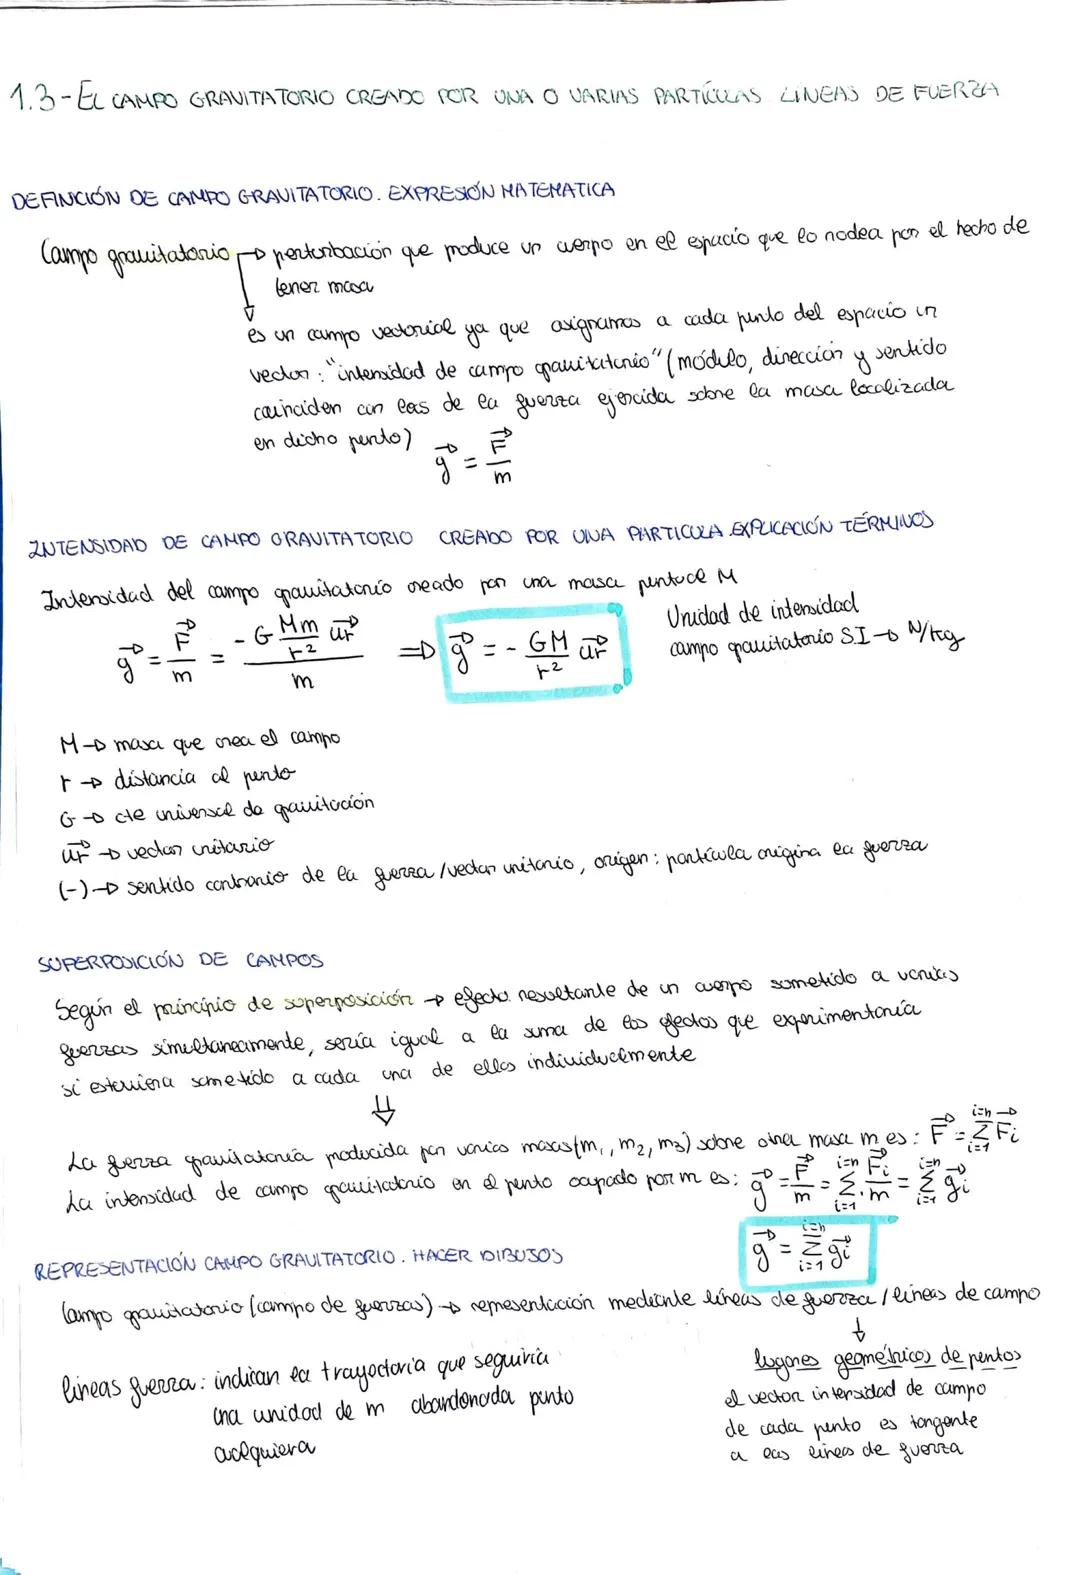 1.3- EL CAMPO GRAVITATORIO CREADO POR UNA O VARIAS PARTÍCULAS LINEAS DE FUERZA
DEFINCIÓN DE CAMPO GRAVITATORIO. EXPRESIÓN MATEMATICA
Campo gravitatorio → perturbación que produce un cuerpo en el espacio que lo rodea por el hecho de
tener masa
es un campo vectorial ya que asignamos a cada punto del espacio un
vector: "intensidad de campo gravitatorio" (módulo, dirección y sentido
coinciden con las de la fuerza ejercida sobre la masa localizada
en dicho punto) g⃗ = F⃗/m
INTENSIDAD DE CAMPO GRAVITATORIO CREADO POR UNA PARTICULA EXPLICACIÓN TÉRMINOS
Intensidad del campo gravitatorio creado por una masa puntual M
g⃗ = F⃗/m = (-G Mm/r² u⃗r)/m ⇒ g⃗ = - GM/r² u⃗r
Unidad de intensidad
campo gravitatorio SI → N/kg
M → masa que crea el campo
r → distancia al punto
G → cte universal de gravitación
u⃗r → vector unitario
(-) → sentido contrario de la fuerza/vector unitario, origen: partícula origina la fuerza
SUPERPOSICIÓN DE CAMPOS
Según el principio de superposición → efecto resultante de un cuerpo sometido a varias
fuerzas simultaneamente, sería igual a la suma de los efectos que experimentaría
si estuviera sometido a cada una de ellas individualmente
⇓
La fuerza gravitatoria producida por varias masas (m₁, m₂, m₃) sobre otra masa m es: F⃗ = Σ F⃗i i=n i=1
La intensidad de campo gravitatorio en el punto ocupado por m es: g⃗ = F⃗/m = Σ F⃗i/m i=n i=1 = Σ g⃗i i=n i=1
g⃗ = Σ g⃗i i=n i=1
REPRESENTACIÓN CAMPO GRAVITATORIO. HACER DIBUJOS
Campo gravitatorio (campo de fuerzas) → representación mediante líneas de fuerza / líneas de campo
↓
lugares geométricos de puntos
el vector intensidad de campo
de cada punto es tangente
a las lineas de fuerza
líneas fuerza: indican la trayectoria que seguiría
una unidad de m abandonada punto
cualquiera